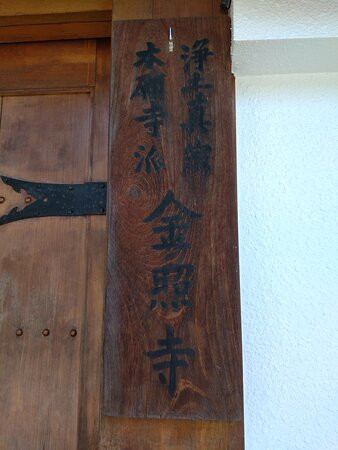 浄土真宗
本願寺派
金照寺